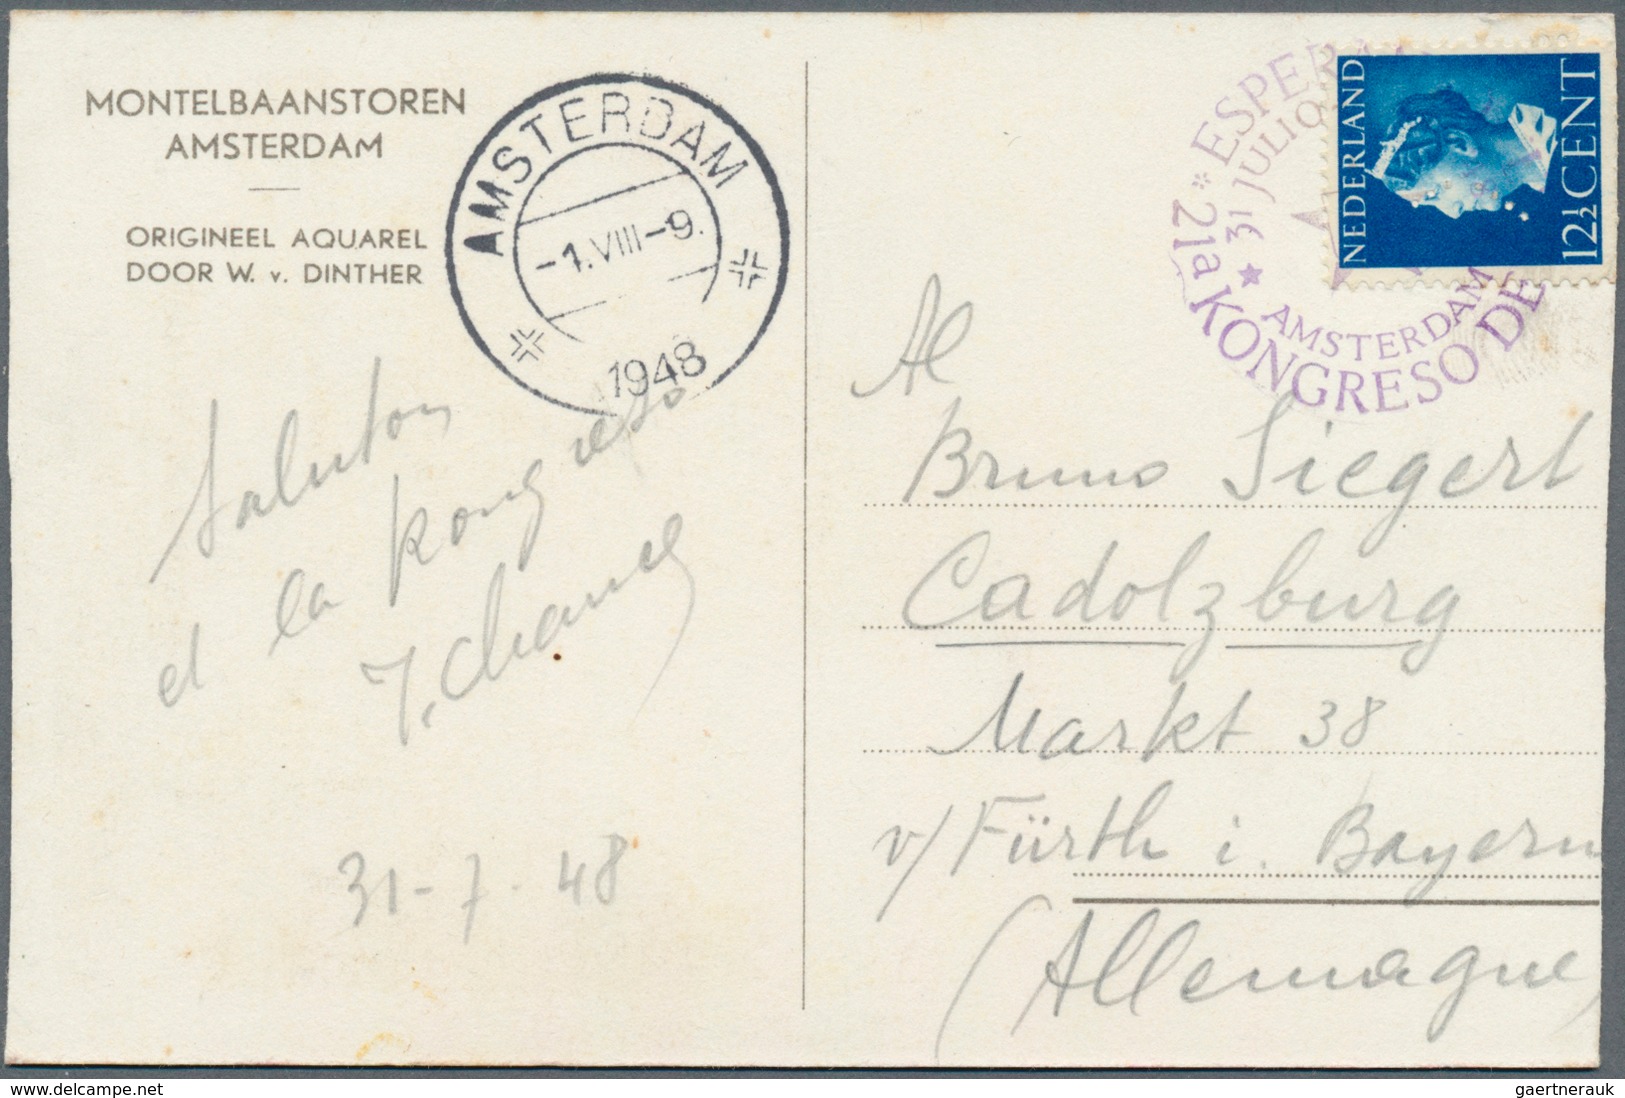 MONTELBAANSTOREN
AMSTERDAM
ORIGINEEL AQUAREL
DOOR W. v. DINTHER
AMSTERDAM
-1.VIII-9.
1948
Saluton
el la kongreso
31-7-48
ESPERA
* 31 JULIO
21a KONGRESO DE
★ AMSTERDAM
NEDERLAND
12½ CENT
Al
Bruno Siegert
Cadolzburg
Markt 38
v/ Fürth i. Bayern
(Allemagne)
delcampe.net
gaertnerauk